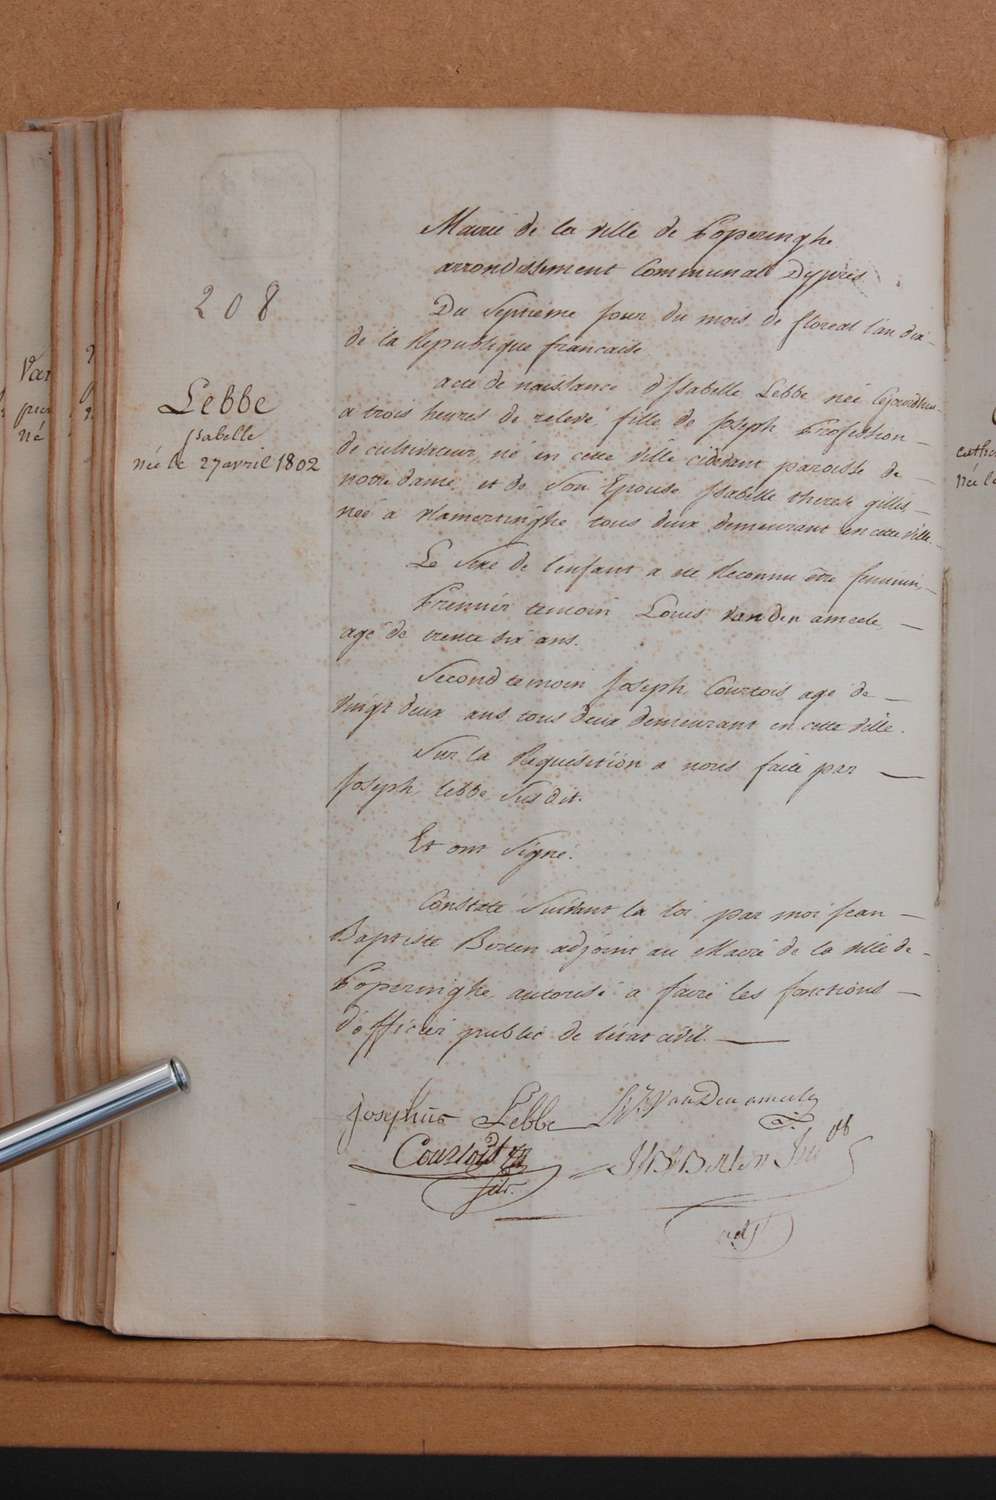 208
Lebbe
Isabelle
née le 27 avril 1802
Mairie de la ville de Poperinghe
arrondissement Communal D'ypres
Du Septieme jour du mois de floreal l'an dix
de la Republique francaise
acte de naissance d'Isabelle Lebbe née
a trois heures de relevé, fille de Joseph Profession
de cultivateur, né en cette ville cidevant paroisse de
notre dame, et de Son Epouse Isabelle therese gillis
née a vlamertinghe tous deux demeurant en cette ville.
Le Sexe de l'enfant a été Reconnu être feminin,
Premier temoin Louis vanden amele
agé de trente six ans.
Second temoin Joseph Courtois agé de
vingt deux ans tous deux demeurant en cette ville.
Sur la Requisition a nous faite par
Joseph lebbe Susdit.
Et ont Signé.
Constaté Suivant la loi par moi jean
Baptiste Berten adjoint au Maire de la ville de
Poperinghe, autorisé a faire les fonctions
d'officier public de l'état civil.
Josephus Lebbe VanDenameele
Courtois Berten
adj
Van
né
née le